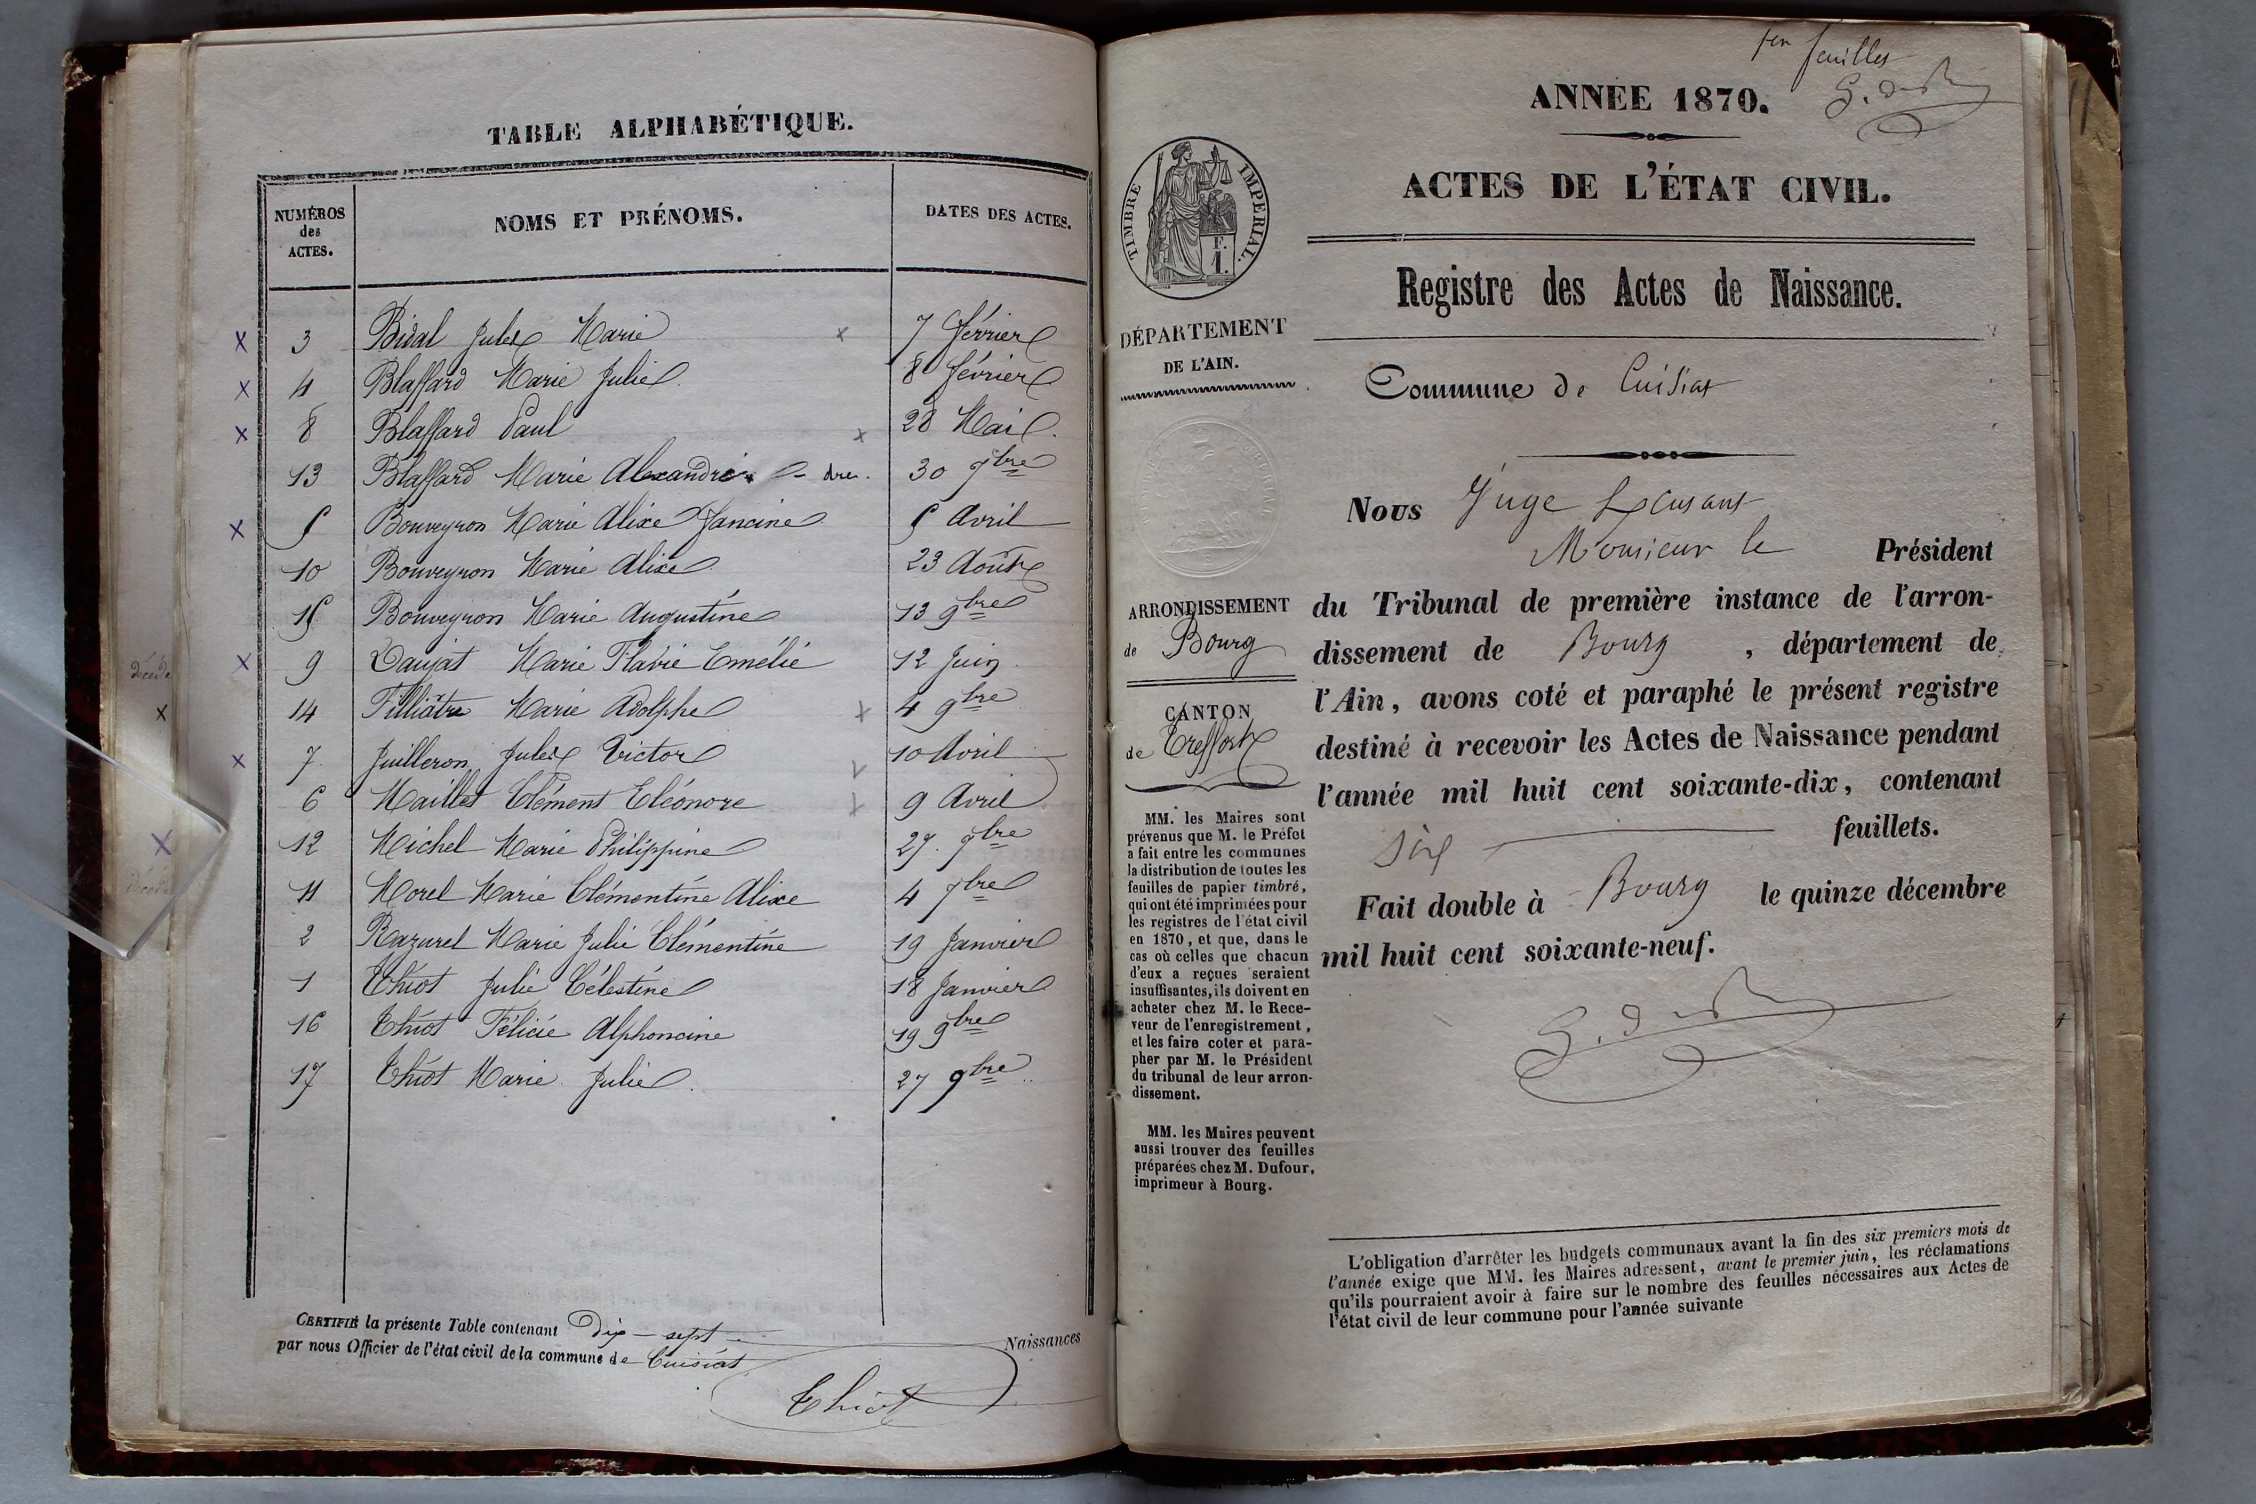 TABLE ALPHABÉTIQUE.
NUMÉROS
des
ACTES.
NOMS ET PRÉNOMS.
DATES DES ACTES.
x 3 Bidal Jules Marie x 7 février
x 4 Blaffard Marie Julie 8 février
x 8 Blaffard Paul x 28 Mai
13 Blaffard Marie Alexandre - dre. 30 7bre
x 5 Bouveyron Marie Alixe Francine 5 Avril
10 Bouveyron Marie Alixe 23 Août
15 Bouveyron Marie Augustine 13 9bre
décédé x 9 Daujat Marie Flavie Emélie 12 Juin
x 14 Filliâtre Marie Adolphe x 4 9bre
x 7 Juilleron Jules Victor 10 Avril
6 Maillet Clément Eléonore x 9 Avril
x 12 Michel Marie Philippine 27 7bre
11 Morel Marie Clémentine Alixe 4 7bre
2 Razurel Marie Julie Clémentine 19 Janvier
1 Thiot Julie Célestine 18 Janvier
16 Thiot Félicie Alphoncine 19 9bre
17 Thiot Marie Julie 27 9bre
CERTIFIÉ la présente Table contenant Dix-sept Naissances
par nous Officier de l'état civil de la commune de Cuisiat
Thiot
feuilles
ANNÉE 1870.
ACTES DE L'ÉTAT CIVIL.
Registre des Actes de Naissance.
TIMBRE IMPÉRIAL.
F.
1.
DÉPARTEMENT
DE L'AIN.
ARRONDISSEMENT
de Bourg
CANTON
de Treffort
MM. les Maires sont
prévenus que M. le Préfet
a fait entre les communes
la distribution de toutes les
feuilles de papier timbré,
qui ont été imprimées pour
les registres de l'état civil
en 1870, et que, dans le
cas où celles que chacun
d'eux a reçues seraient
insuffisantes, ils doivent en
acheter chez M. le Rece-
veur de l'enregistrement,
et les faire coter et para-
pher par M. le Président
du tribunal de leur arron-
dissement.
MM. les Maires peuvent
aussi trouver des feuilles
préparées chez M. Dufour,
imprimeur à Bourg.
Commune de Cuisiat
Nous Juge
Monsieur le Président
du Tribunal de première instance de l'arron-
dissement de Bourg, département de
l'Ain, avons coté et paraphé le présent registre
destiné à recevoir les Actes de Naissance pendant
l'année mil huit cent soixante-dix, contenant
six feuillets.
Fait double à Bourg le quinze décembre
mil huit cent soixante-neuf.
L'obligation d'arrêter les budgets communaux avant la fin des six premiers mois de
l'année exige que MM. les Maires adressent, avant le premier juin, les réclamations
qu'ils pourraient avoir à faire sur le nombre des feuilles nécessaires aux Actes de
l'état civil de leur commune pour l'année suivante